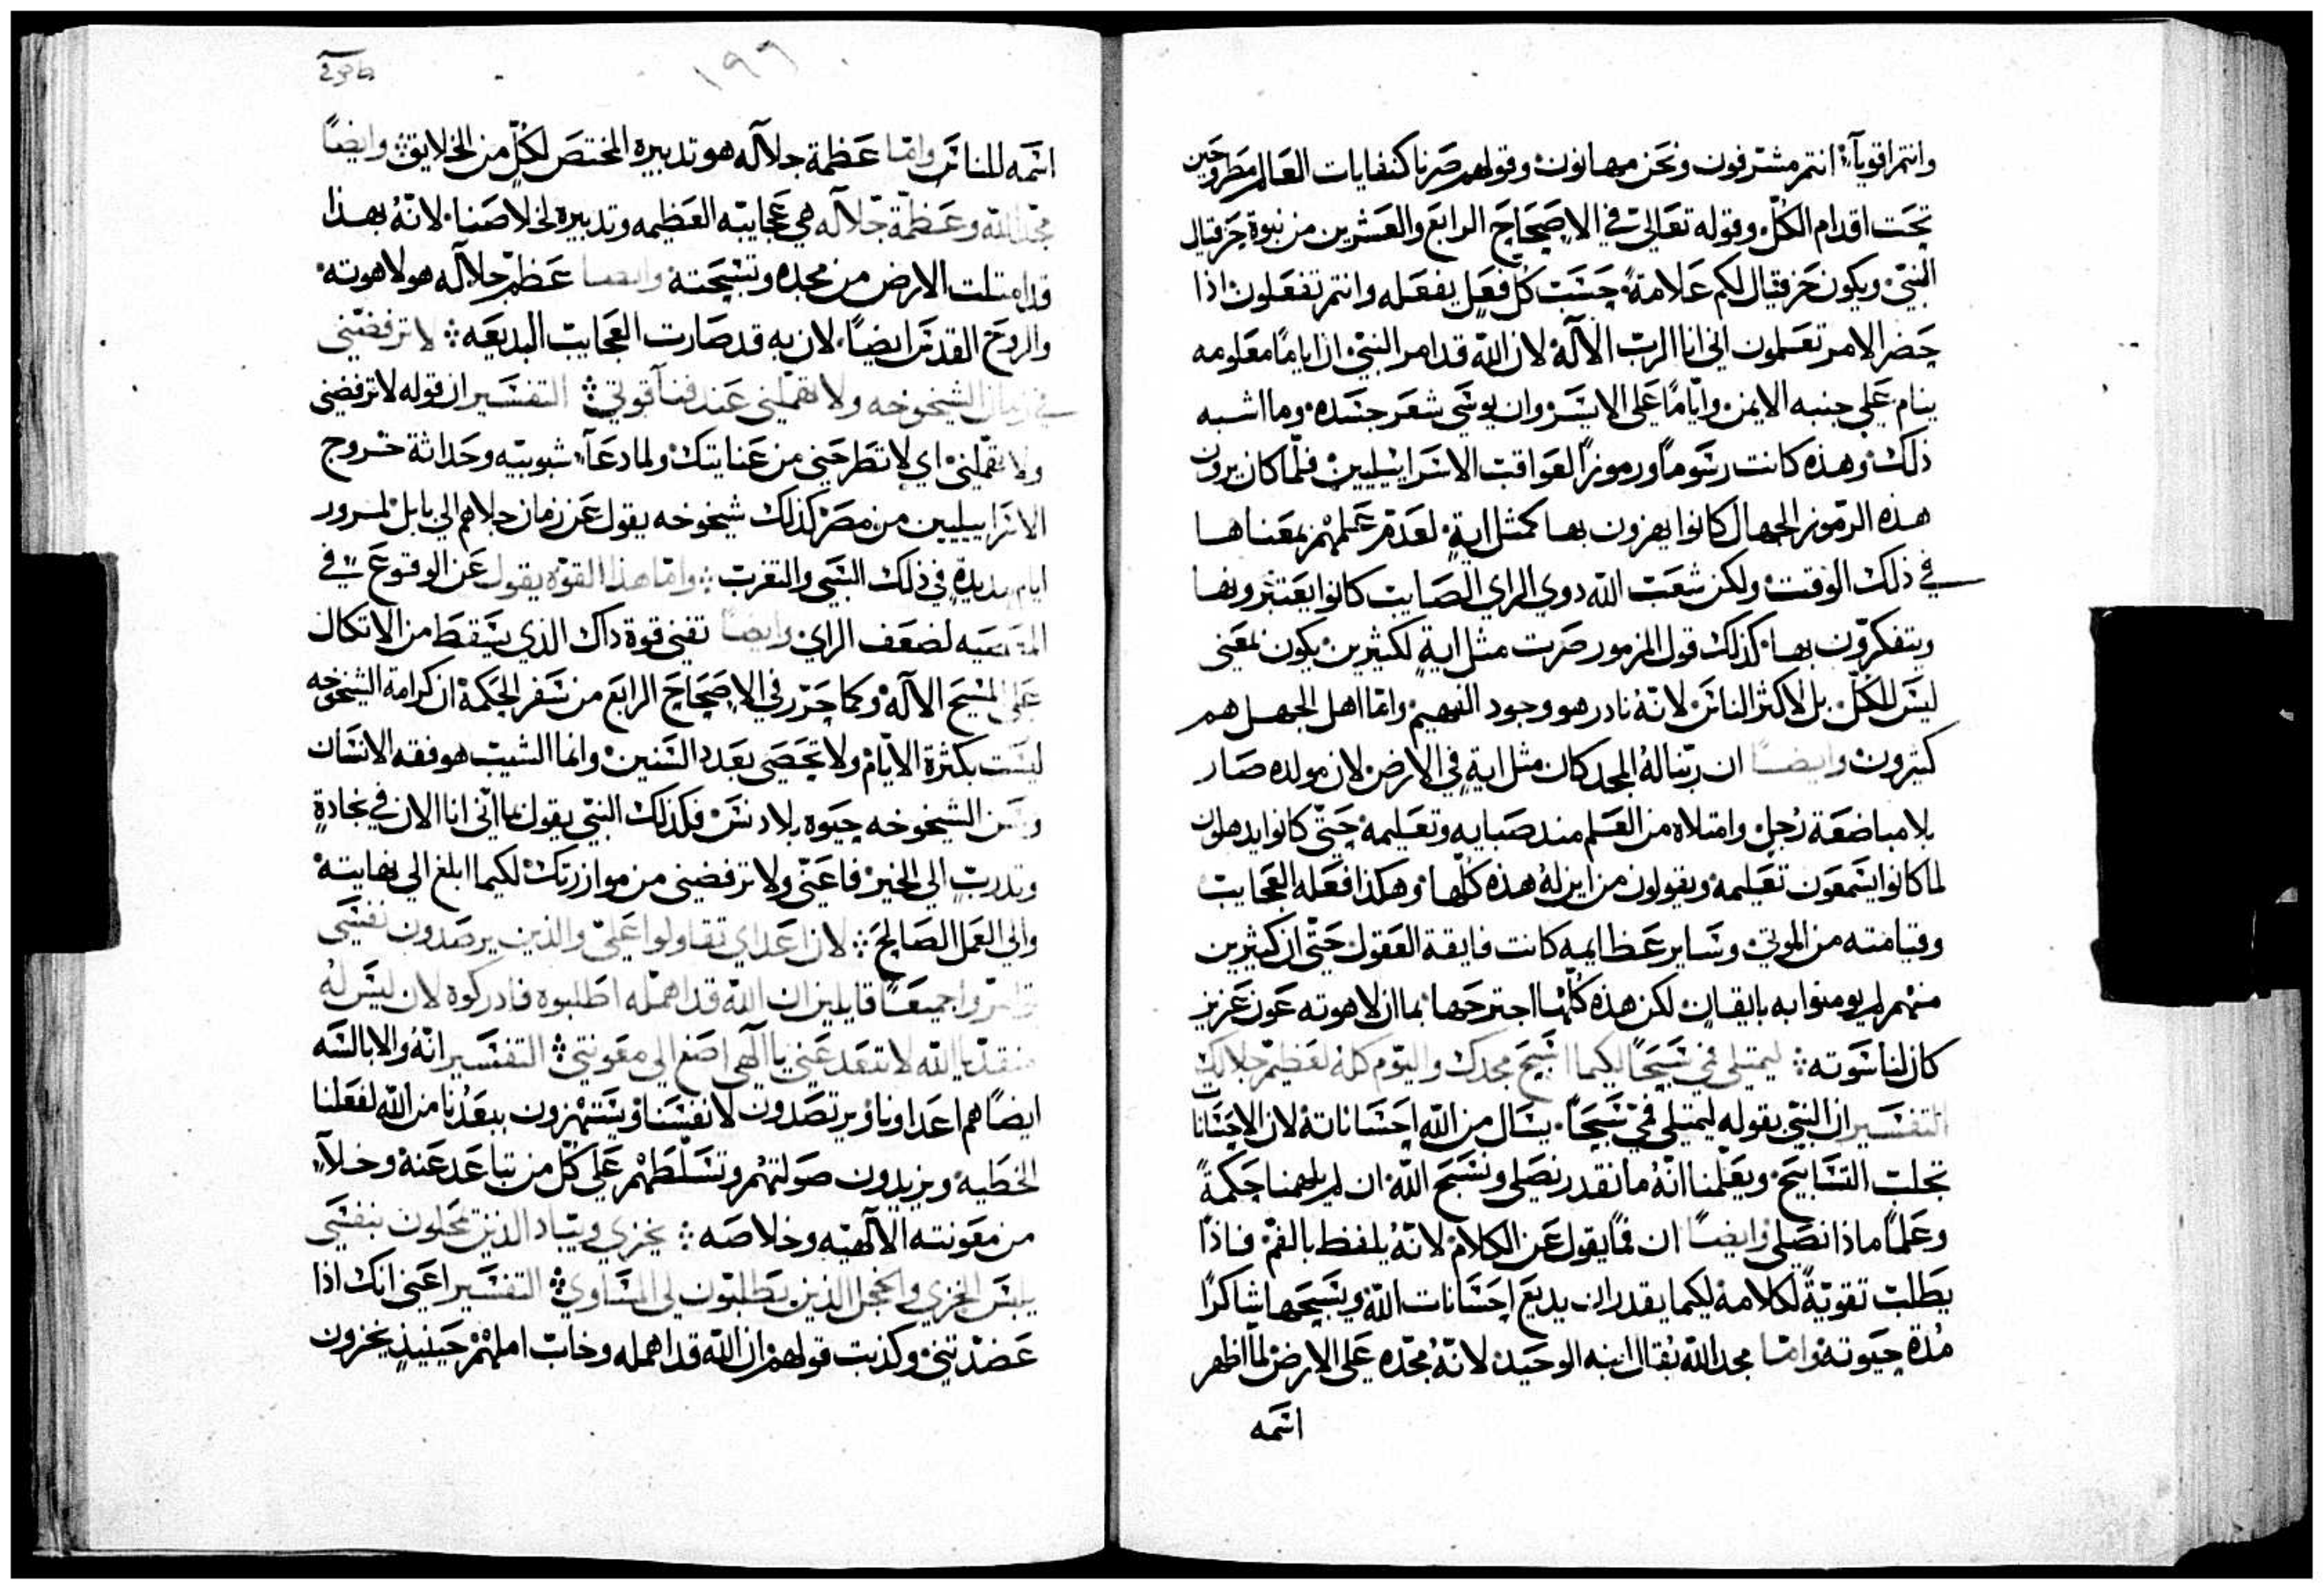 وانتم اقويآء انتم مشرفون ونحن مهانون وقولهم صرنا كنفايات العالم مطروحين
تحت اقدام الكل وقوله تعالى في الاصحاح الرابع والعشرين من نبوة حزقيال
النبي ويكون حزقيال لكم علامةً حسب كل فعل يفعله وانتم تفعلون اذا
حضر الامر تعلمون اني انا الرب الآله لان الله قد امر النبي ان اياماً معلومه
ينام على جنبه الايمن واياماً على الايسر وان يوسّي شعر جسده وما اشبه
ذلك وهذه كانت رسوماً ورموزاً لعواقب الاسراييليين فلما كان يرون
هذه الرموز الجهال كانوا يهزون بها كمثل اية لعدم علمهم بمعناها
في ذلك الوقت ولكن شعب الله دوي الراي الصايب كانوا يعتبرونها
ويتفكرون بها كذلك قول المزمور صرت مثل اية لكثيرين يكون بمعنى
ليس للكل بل لاكثر الناس لانه نادر هو وجود الفهيم واما اهل الجهل هم
كثيرون وايضاً ان ربنا له المجد كان مثل اية في الارض لان مولده صار
بلا مباضعة رجل وامتلاه من العلم منذ صبايه وتعليمه حتى كانوا يدهلون
لما كانوا يسمعون تعليمه ويقولون من اين له هذه كلها وهكذا فعله العجايب
وقيامته من الموتى وساير عظايمه كانت فايقة العقول حتى ان كثيرين
منهم لم يومنوا به بايقان لكن هذه كلها اجترحها بما ان لاهوته عون عزيز
كان لناسوته ليمتلى فمي تسبحاً لكيما اسبح مجدك واليوم كله لعظم جلالك
التفسير ان النبي بقوله ليمتلى فمي تسبحاً يسال من الله احساناته لان الاحسانا
تجلب التسابيح ويعلمنا انه ما نقدر نصلي ونسبح الله ان لم يلهمنا حكمةً
وعلماً ماذا نصلي وايضاً ان فماً يقول عن الكلام لانه يلفظ بالفم فاذاً
يطلب تقويةً لكلامه ليكما يقدر ان يديع احسانات الله ويسبحها شاكراً
مدة حيوته واما مجد الله يقال ابنه الوحيد لانه مجده على الارض لما اظهر
اسمه
١٩٦
اسمه للناس واما عظمة جلاله هو تدبيره المختص لكل من الخلايق وايضاً
مجد الله وعظمة جلاله هي عجايبه العظيمه وتدبيره لخلاصنا لانه بهذا
قد امتلت الارض من مجده وتسبحته وايضاً عظم جلاله هو لاهوته
والروح القدس ايضاً لان به قد صارت العجايب البديعه لا ترفضني
في زمان الشيخوخه ولا تهملني عند فنآ قوتي التفسير ان قوله لا ترفضني
ولا تهملني اي لا تطرحني من عنايتك ولما دعآ شبوبيته وحداثة خروج
الاسراييليين من مصر كذلك شيخوخه يقول عن زمان جلاهم الي بابل لمرور
ايام مديدة في ذلك السبي والتغرب واما هذا القوه يقول عن الوقوع في
لضعف الراي وايضاً تفنى قوة داك الذي يسقط من الاتكال
على المسيح الآله وكما حرر في الاصحاح الرابع من سفر الحكمة ان كرامة الشيخوخه
ليست بكثرة الايام ولا تحصى بعدد السنين وانما الشيب هو فقه الانسان
وسن الشيخوخه حيوه بلا دنس فكذلك النبي يقول بما اني انا الان في
الى الخير فاعني ولا ترفضني من موازرتك لكيما ابلغ الي نهايته
والى العمل الصالح لان اعداي تقاولوا علي والذين يرصدون نفسي
توامروا جميعاً قايلين ان الله قد اهمله اطلبوه فادركوه لان ليس له
منقذ يا الله لا تتعد عني يا آلهي اصغ الي معونتي التفسير انه والا بالسه
ايضاً هم اعداونا ويرتصدون لانفسنا ويستنهزون ببعدنا من الله لفعلنا
الخطيه ويزيدون صولتهم وتسلطهم على كل من تباعد عنه وخلآء
من معونته الالهيه وخلاصه يخزي ويباد الذين يمحلون بنفسي
يلبس الخزي والخجل الذين يطلبون لي المساوي التفسير اعني انك اذا
عضدتني وكذبت قولهم ان الله قد اهمله وخاب املهم حينيذ يخزون